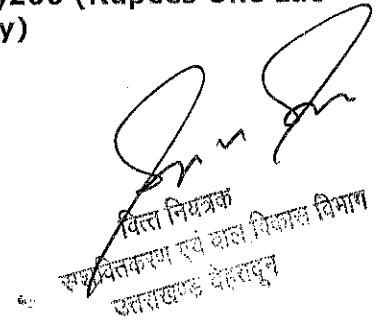 200 (Rupees One Lac
y)
वित्त नियंत्रक
सशक्तिकरण एवं बाल विकास विभाग
उत्तराखण्ड देहरादून